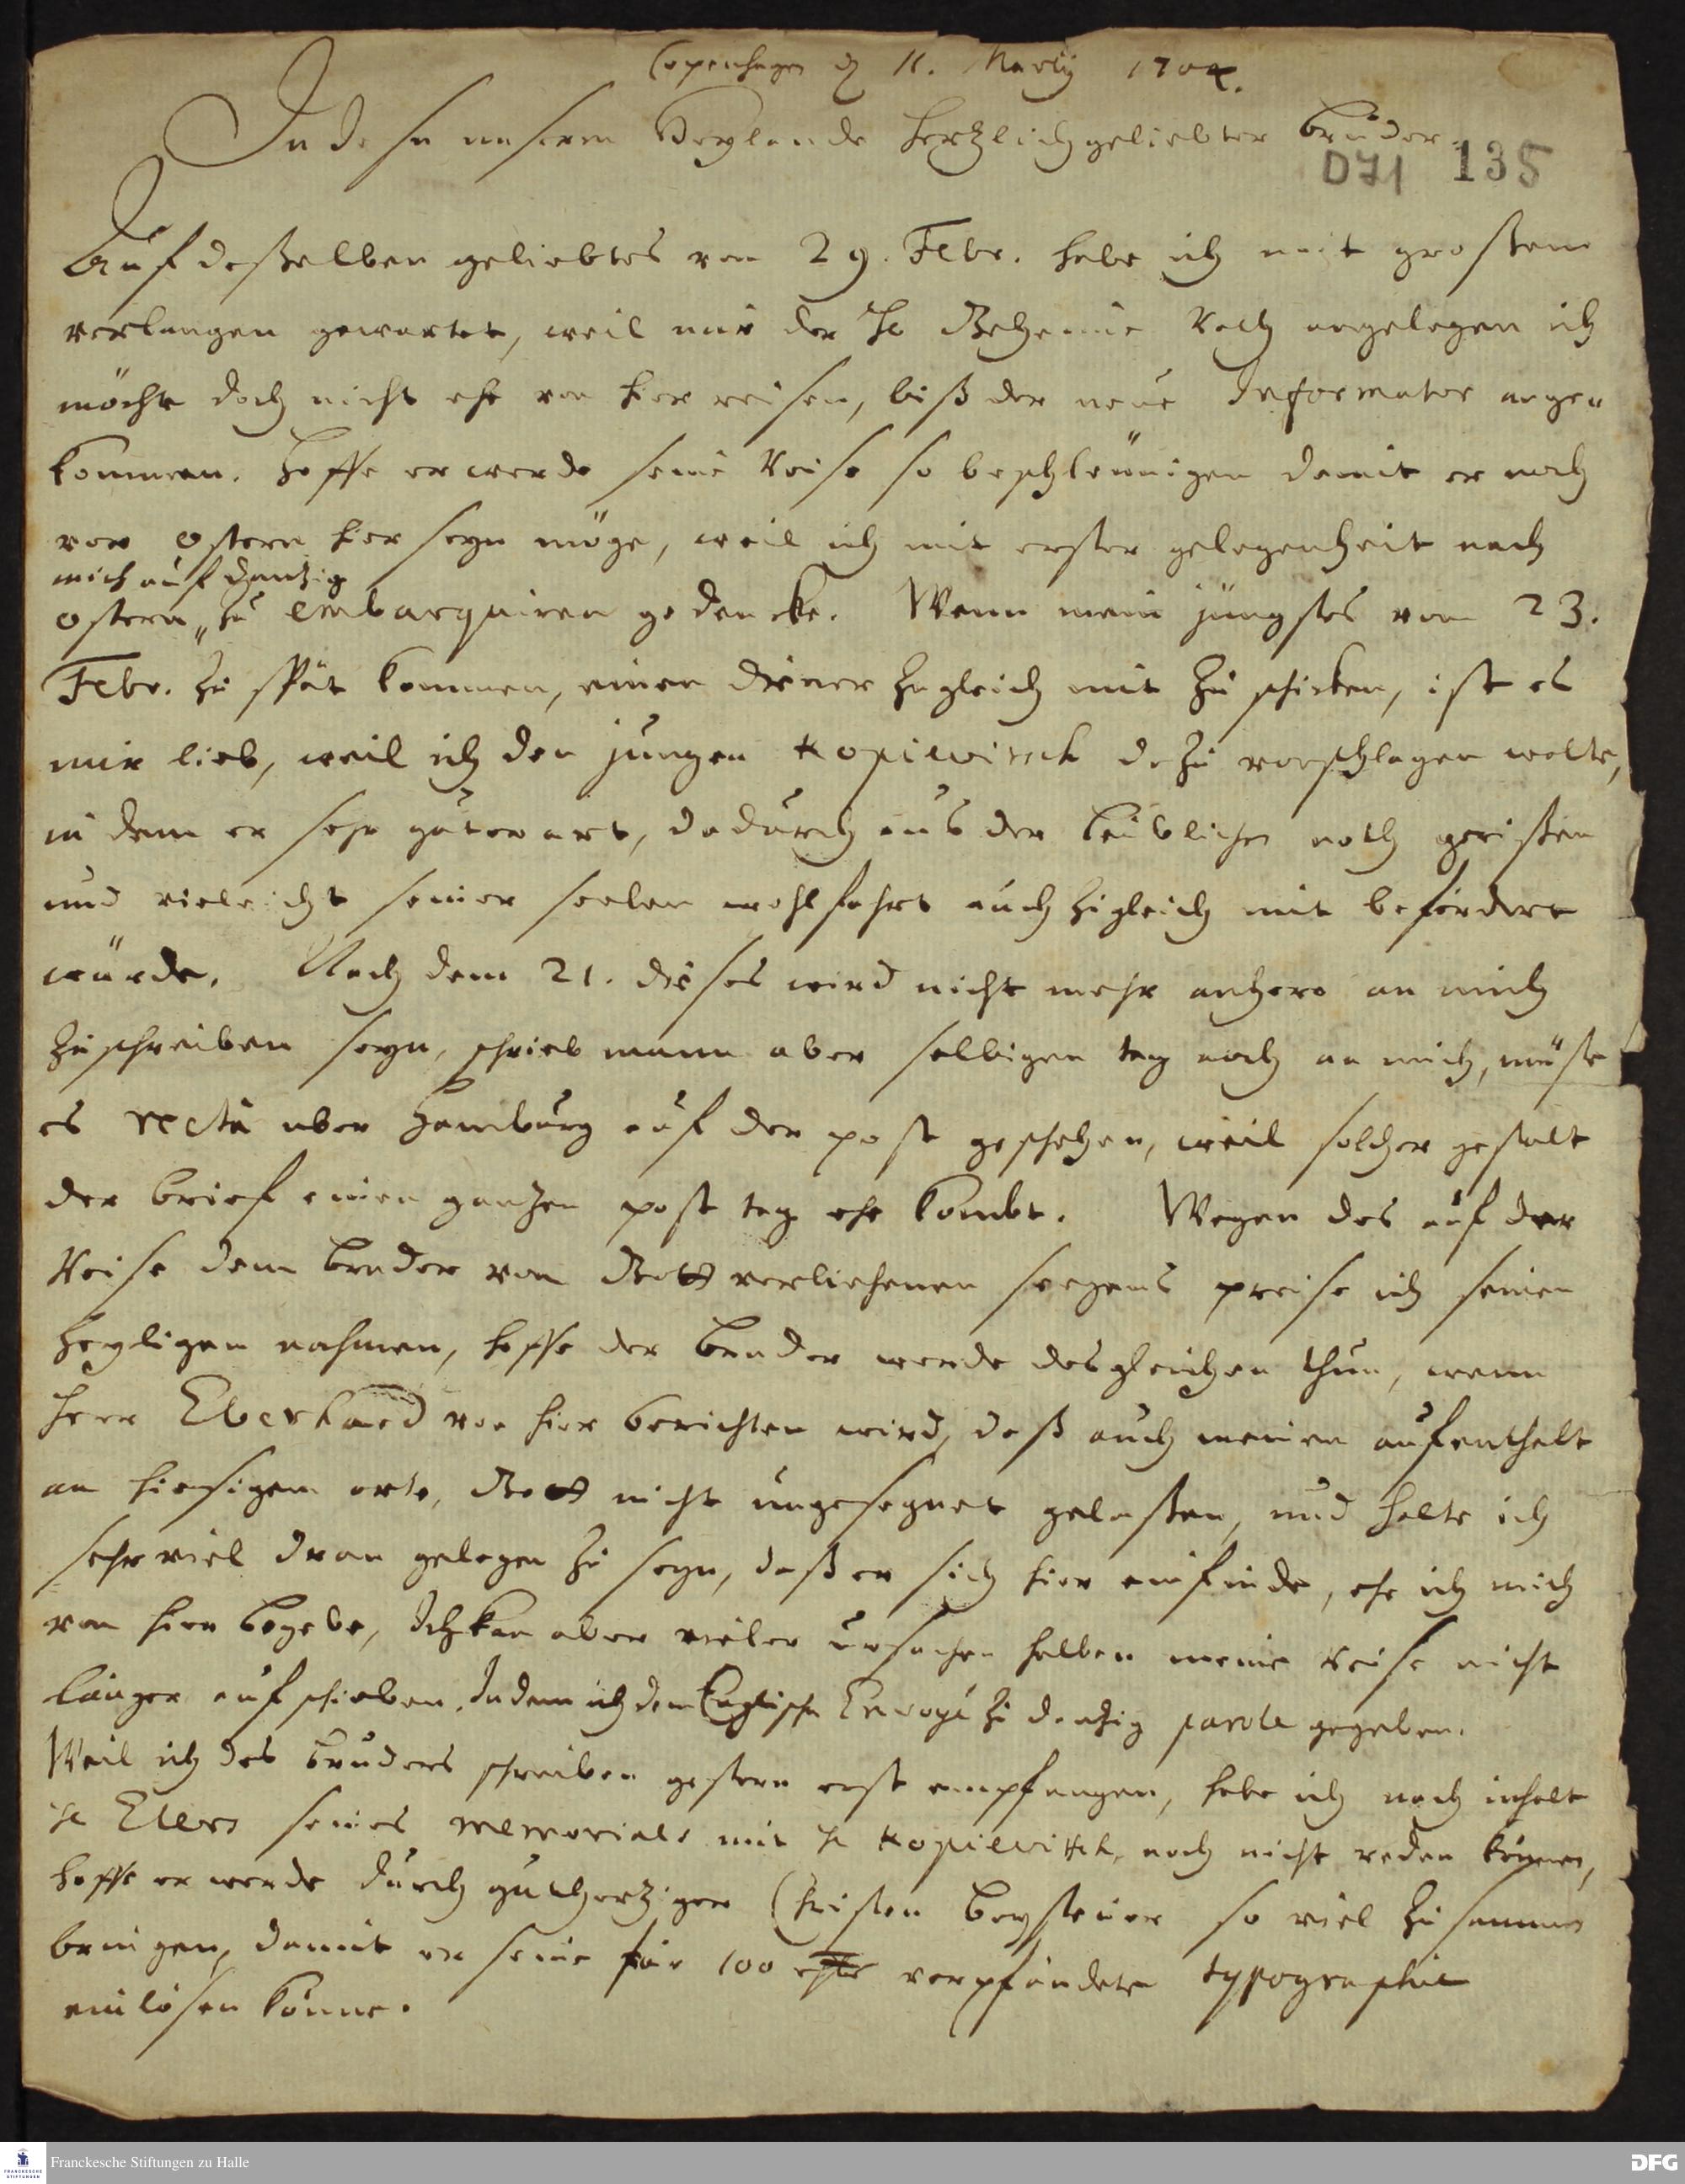 Copenhagen d 11. Martij 1704.
In dessen unserm Heylande hertzlich geliebter Bruder.
D71 135
Auf deßelben geliebtes von 29. Febr. habe ich mit großem
verlangen gewartet, weil mir der H Geheime Rath angelegen ich
möchte doch nicht ehe von hier reisen, biß der neue Informator ange-
kommen. Hoffe er werde seine Reise so beschleunigen damit er noch
vor ostern hier seyn möge, weil ich mit erster gelegenheit nach
mich auf Dantzig
ostern „ zu embarquiren gedencke. Wenn mein jüngstes vom 23.
Febr. zu spät kommen, einen diener zugleich mit zu schicken, ist es
mir lieb, weil ich den jungen Kopiewitsch dazu vorschlagen wolte,
in dem er sehr guter art, dadurch aus der leiblichen noth gerißen
und vieleicht seiner seelen wohlfahrt auch zugleich mit befördert
würde. Nach dem 21. dieses wird nicht mehr anhero an mich
zuschreiben seyn, schrieb mann aber selbigen tag noch an mich, müste
es rectà uber Hamburg auf der post geschehen, weil solcher gestalt
der brief einen gantzen post tag ehe kombt. Wegen des auf der
Reise dem Bruder von Gott verliehenen seegens preise ich seinen
heyligen nahmen, hoffe der Bruder werde desgleichen thun, wenn
Herr Eberhard von hier berichten wird, daß auch meinen aufenthalt
an hiesigem orte, Gott nicht ungesegnet gelaßen, und halte ich
sehr viel dran gelegen zu seyn, daß er sich hier einfinde, ehe ich mich
von hier begebe, Ich kan aber vieler ursachen halben meine Reise nicht
länger aufschieben. Indem ich dem Englischen Envoyé zu dantzig parole gegeben.
Weil ich des Bruders schreiben gestern erst empfangen, habe ich nach inhalt
H Elers seines memorials mit H Kopiewitsch, noch nicht reden können,
hoffe er werde durch guthertziger Christen beysteuer so viel zusammen
bringen, damit er seine für 100 verpfändete typographie
einlösen könne.
Franckesche Stiftungen zu Halle
DFG